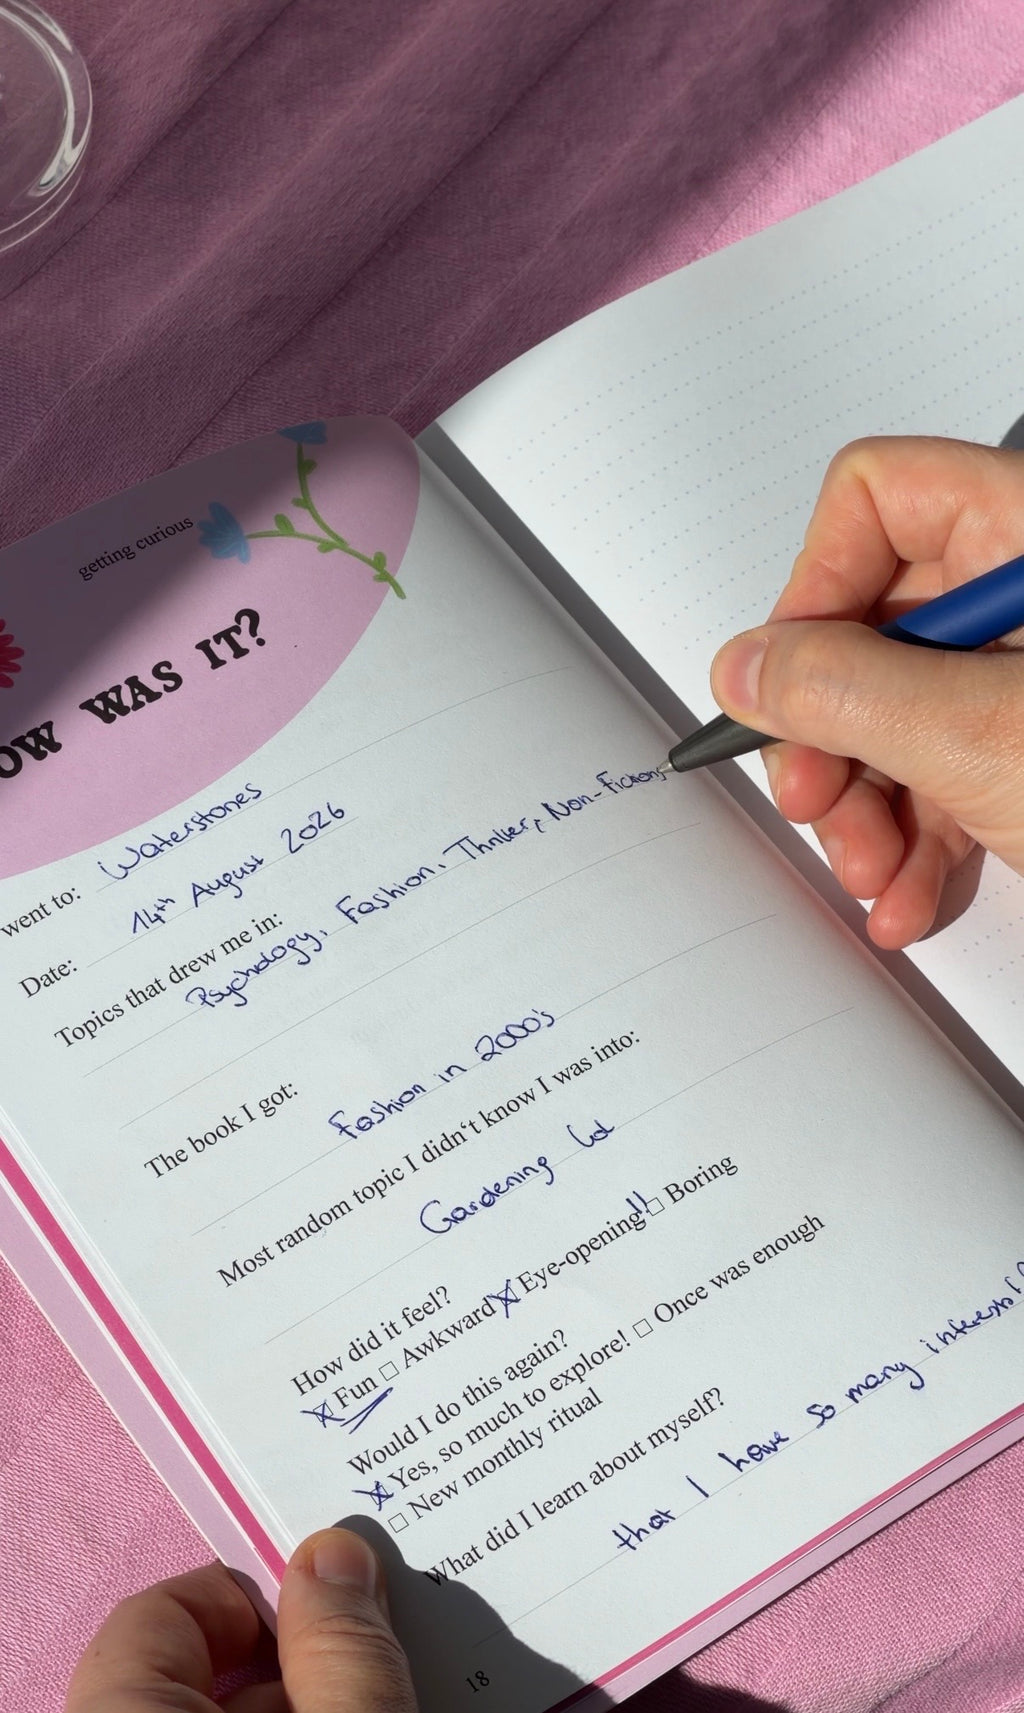 getting curious
OW WAS IT?
went to: Waterstones
Date: 14th August 2026
Topics that drew me in:
Psychology, Fashion, Thriller, Non-Fictions
The book I got:
Fashion in 2000's
Most random topic I didn't know I was into:
Gardening lol
How did it feel?
☒ Fun ☐ Awkward ☒ Eye-opening!! ☐ Boring
Would I do this again?
☒ Yes, so much to explore! ☐ Once was enough
☐ New monthly ritual
What did I learn about myself?
that I have so many interests
18